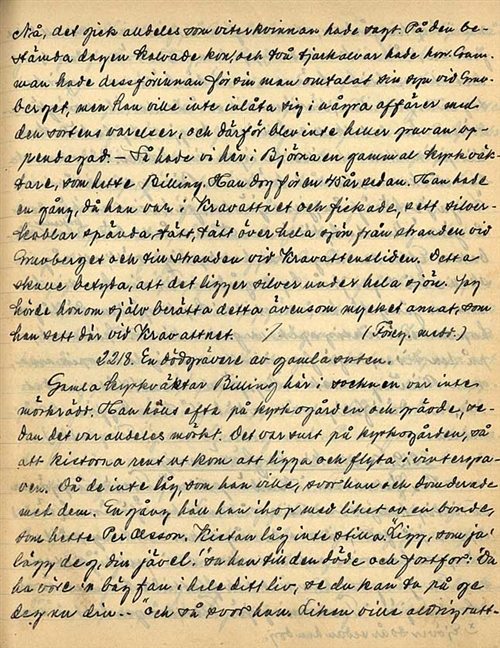 Nå, det gick alldeles som vitterkvinnan hade sagt. På den be-
stämda dagen kalvade kon, och två tjurkalvar hade hon. Gum-
man hade dessförinnan för sin man omtalat sin syn vid Gruv-
berget, men han ville inte inlåta sig i några affärer med
den sortens varelser, och därför blev inte heller gruvan öp-
pendagad. — Så hade vi här i Björna en gammal kyrkväk-
tare, som hette Billing. Han dog för en år sedan. Han hade
en gång, då han var i Kravattnet och fickade, sett silver-
kablar spända, tätt, tätt över hela sjön från stranden vid
Gruvberget och till stranden vid Kravattensliden. Detta
skulle betyda, att det ligger silver under hela sjön. Jag
hörde honom själv berätta detta ävensom mycket annat, som
han sett där vid Kravattnet. (Föreg. medd.)
2218. En dödgrävare av gamla sorten.
Gamla kyrkväktar Billing här i socknen var inte
mörkrädd. Han hölls ofta på kyrkogården och grävde, se-
dan det var alldeles mörkt. Det var surt på kyrkogården, så
att kistorna rent ut kom att ligga och flyta i vintergra-
ven. Då de inte låg, som han ville, svor han och domderade
med dem. En gång höll han ihop med liket av en bonde,
som hette Per Olsson. Kistan låg inte stilla. "Ligg, som ja'
lägg deg, din jävel!" sa han till den döde och fortfor: "Du
ha vöre in båg fan i hele ditt liv, se du kan ta på ge
deg nu din -- " och så svor han. Liken ville aldrig rutt-